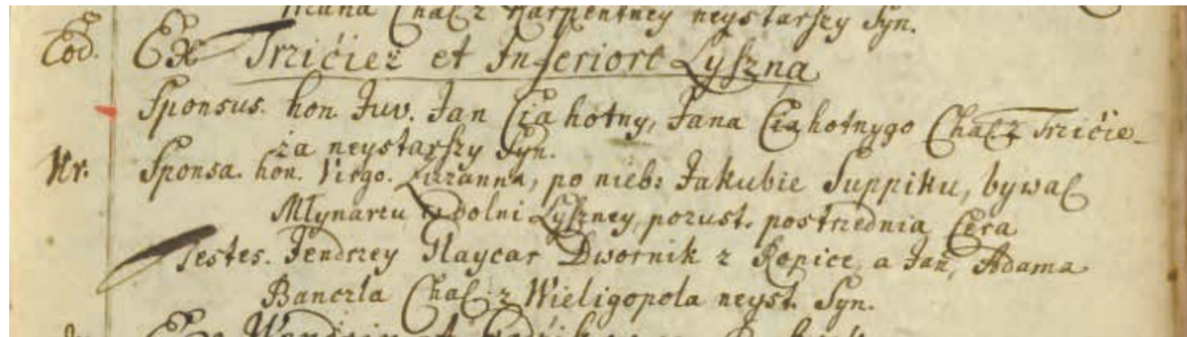 Chał. z Karpentney neystarszy Syn.
Eod. Ex Trzićież et Inferiore Lyszną
Sponsus. hon. Juv. Jan Ciahotny, Jana Ciahotnygo Chał. z Trzićie-
ża neystarszy Syn.
Nr. Sponsa. hon. Virgo. Zuzanna, po nieb: Jakubie Suppiku, bywał
Młynarzu w dolni Lyszney, pozust. postrzednia Cera
Testes. Jendrzey Glaycar Dwornik z Ropice, a Jan, Adama
Banczła Chał: z Wieligopola neyst. Syn.
Ex